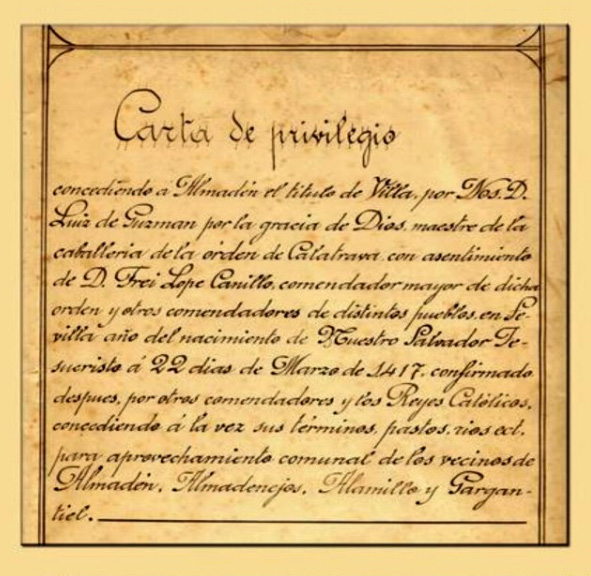 Carta de privilegio
concediendo a Almadén el titulo de Villa, por Nos. D.
Luiz de Guzman por la gracia de Dios, maestre de la
caballeria de la orden de Calatrava, con asentimiento
de D. Frei Lope Canillo, comendador mayor de dicha
orden y otros comendadores de distintos pueblos, en Se-
villa año del nacimiento de Nuestro Salvador Je-
sucristo á 22 dias de Marzo de 1417, confirmado
despues, por otros comendadores y los Reyes Católicos,
concediendo á la vez sus términos, pastos, rios ect.
para aprovechamiento comunal de los vecinos de
Almadén, Almadenejos, Alamillo y Gargan-
tiel.